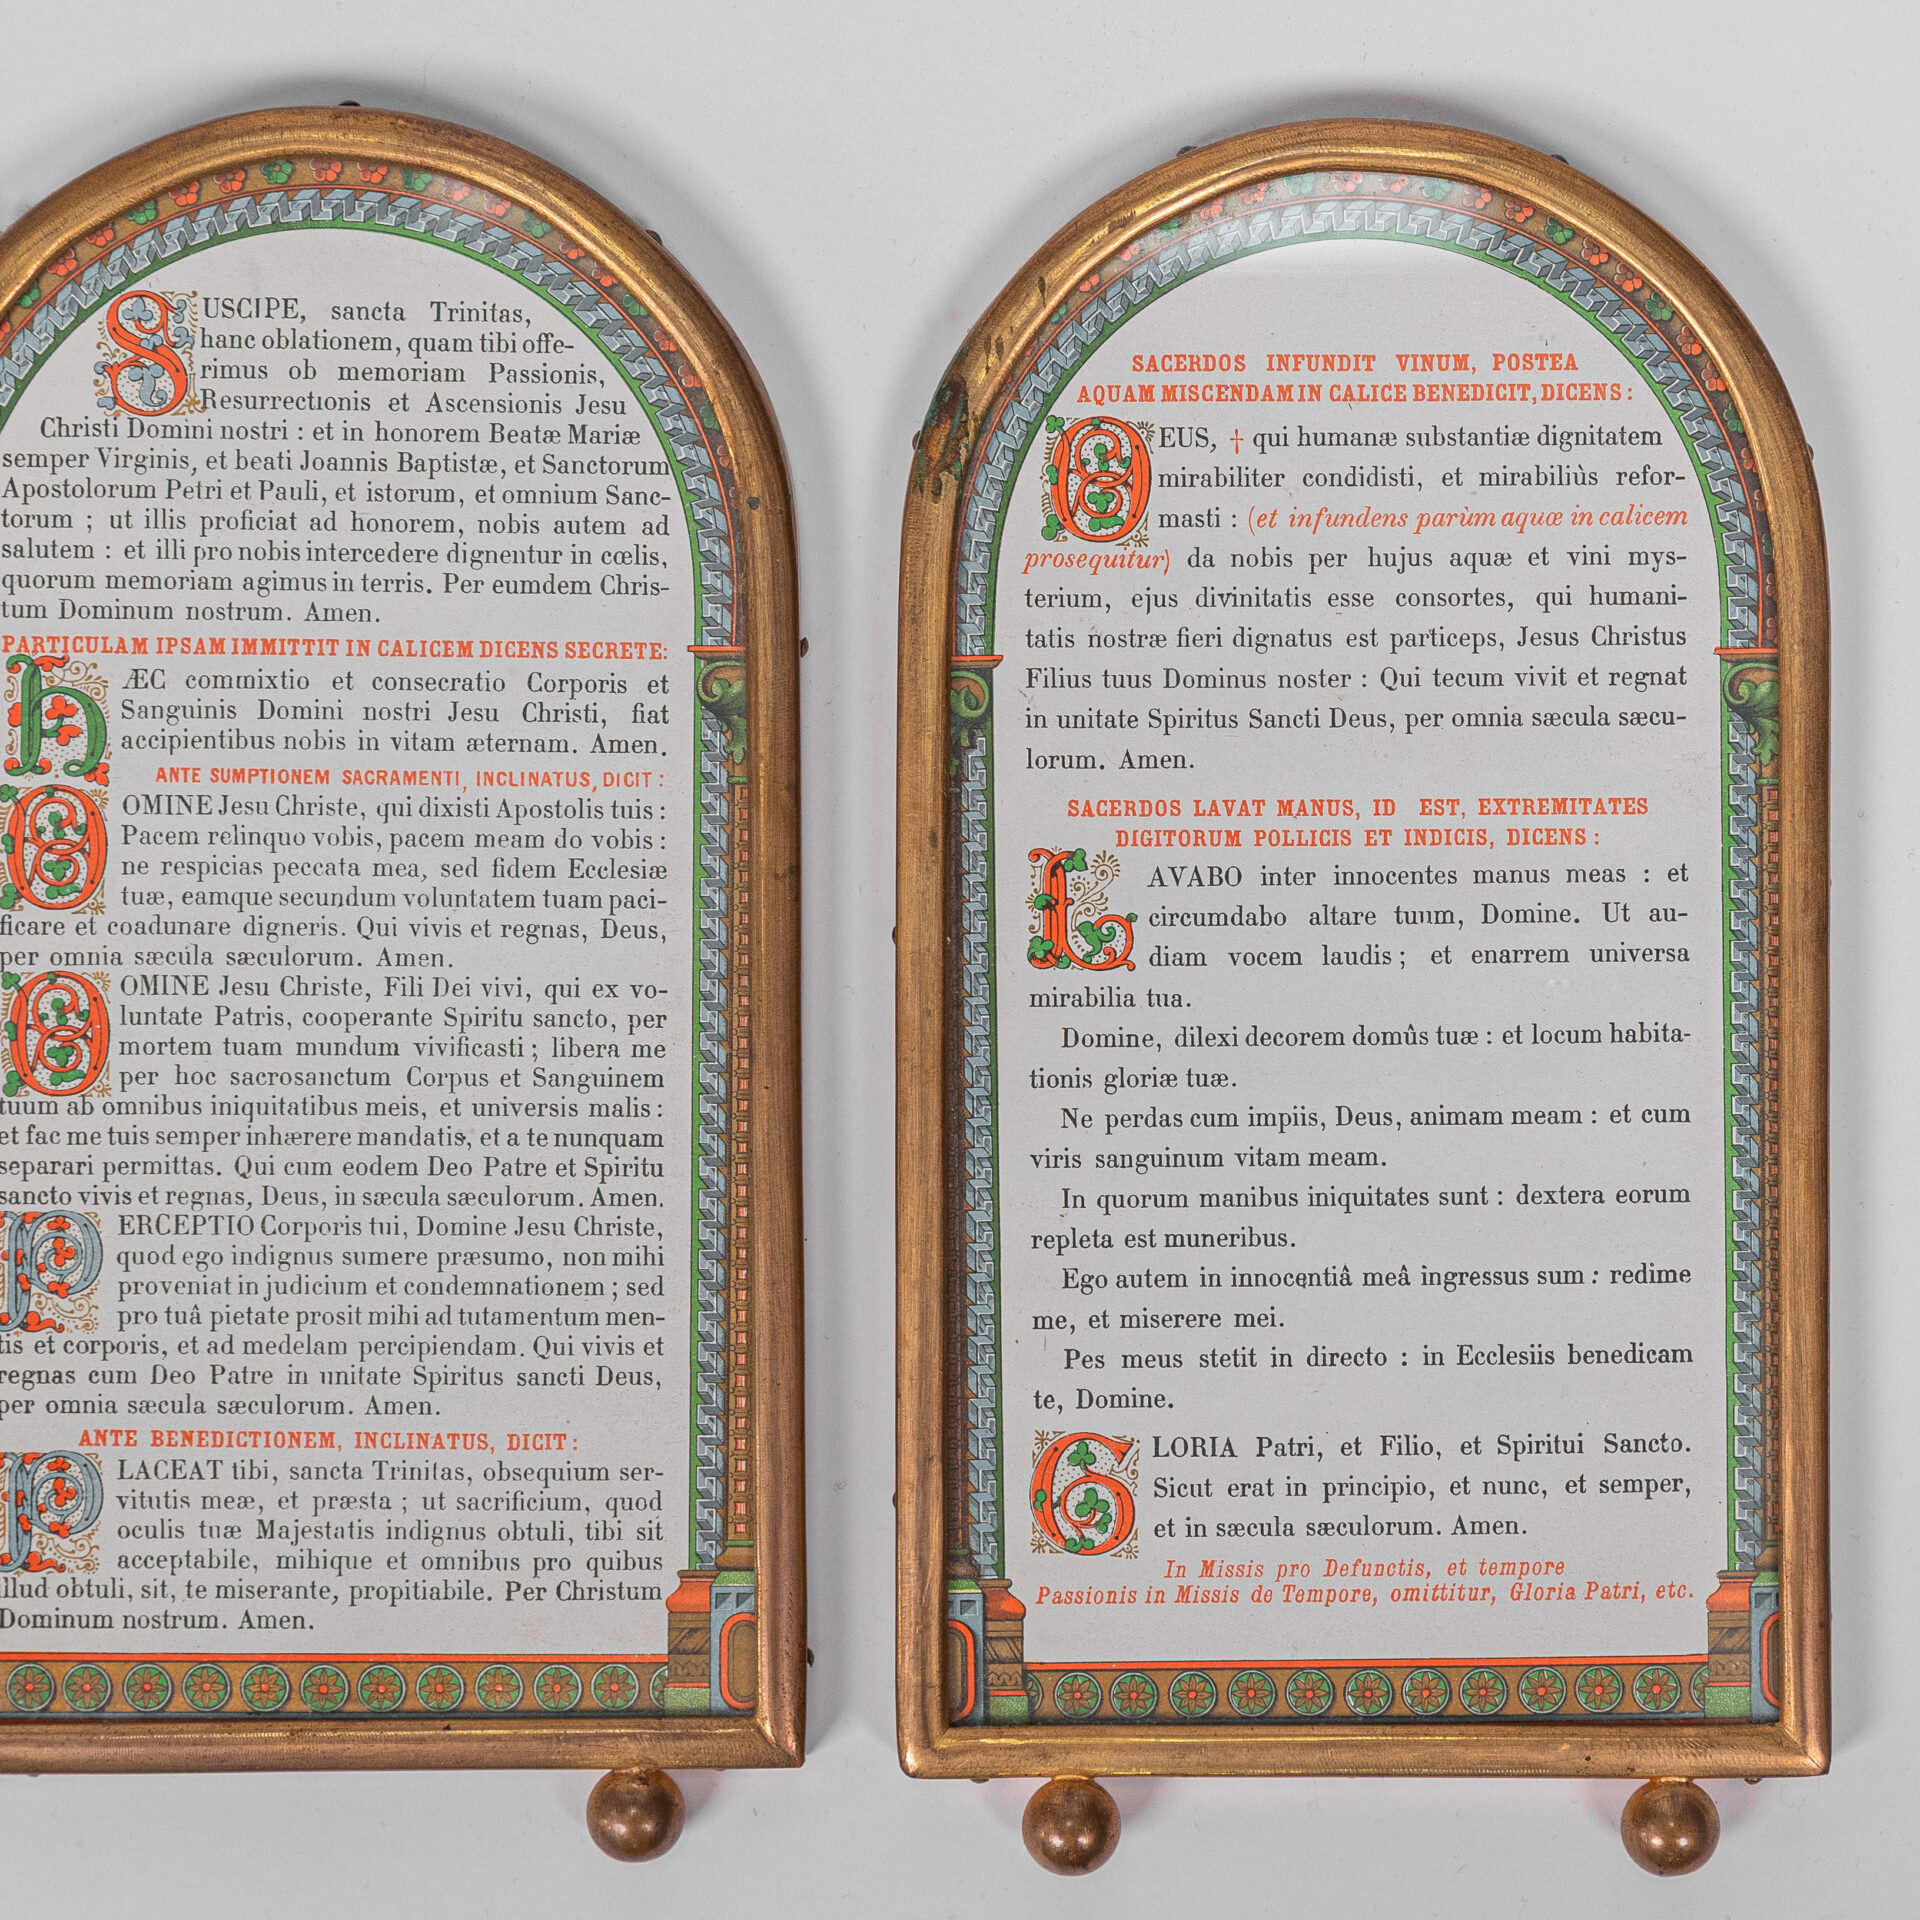 SUSCIPE, sancta Trinitas,
hanc oblationem, quam tibi offe-
rimus ob memoriam Passionis,
Resurrectionis et Ascensionis Jesu
Christi Domini nostri : et in honorem Beatæ Mariæ
semper Virginis, et beati Joannis Baptistæ, et Sanctorum
Apostolorum Petri et Pauli, et istorum, et omnium Sanc-
torum ; ut illis proficiat ad honorem, nobis autem ad
salutem : et illi pro nobis intercedere dignentur in cœlis,
quorum memoriam agimus in terris. Per eumdem Chris-
tum Dominum nostrum. Amen.
PARTICULAM IPSAM IMMITTIT IN CALICEM DICENS SECRETE:
HÆC commixtio et consecratio Corporis et
Sanguinis Domini nostri Jesu Christi, fiat
accipientibus nobis in vitam æternam. Amen.
ANTE SUMPTIONEM SACRAMENTI, INCLINATUS, DICIT :
DOMINE Jesu Christe, qui dixisti Apostolis tuis :
Pacem relinquo vobis, pacem meam do vobis :
ne respicias peccata mea, sed fidem Ecclesiæ
tuæ, eamque secundum voluntatem tuam paci-
ficare et coadunare digneris. Qui vivis et regnas, Deus,
per omnia sæcula sæculorum. Amen.
DOMINE Jesu Christe, Fili Dei vivi, qui ex vo-
luntate Patris, cooperante Spiritu sancto, per
mortem tuam mundum vivificasti ; libera me
per hoc sacrosanctum Corpus et Sanguinem
tuum ab omnibus iniquitatibus meis, et universis malis :
et fac me tuis semper inhærere mandatis, et a te nunquam
separari permittas. Qui cum eodem Deo Patre et Spiritu
sancto vivis et regnas, Deus, in sæcula sæculorum. Amen.
PERCEPTIO Corporis tui, Domine Jesu Christe,
quod ego indignus sumere præsumo, non mihi
proveniat in judicium et condemnationem ; sed
pro tuâ pietate prosit mihi ad tutamentum men-
tis et corporis, et ad medelam percipiendam. Qui vivis et
regnas cum Deo Patre in unitate Spiritus sancti Deus,
per omnia sæcula sæculorum. Amen.
ANTE BENEDICTIONEM, INCLINATUS, DICIT :
PLACEAT tibi, sancta Trinitas, obsequium ser-
vitutis meæ, et præsta ; ut sacrificium, quod
oculis tuæ Majestatis indignus obtuli, tibi sit
acceptabile, mihique et omnibus pro quibus
illud obtuli, sit, te miserante, propitiabile. Per Christum
Dominum nostrum. Amen.
SACERDOS INFUNDIT VINUM, POSTEA
AQUAM MISCENDAM IN CALICE BENEDICIT, DICENS :
DEUS, † qui humanæ substantiæ dignitatem
mirabiliter condidisti, et mirabiliùs refor-
masti : (et infundens parùm aquæ in calicem
prosequitur) da nobis per hujus aquæ et vini mys-
terium, ejus divinitatis esse consortes, qui humani-
tatis nostræ fieri dignatus est particeps, Jesus Christus
Filius tuus Dominus noster : Qui tecum vivit et regnat
in unitate Spiritus Sancti Deus, per omnia sæcula sæcu-
lorum. Amen.
SACERDOS LAVAT MANUS, ID EST, EXTREMITATES
DIGITORUM POLLICIS ET INDICIS, DICENS :
LAVABO inter innocentes manus meas : et
circumdabo altare tuum, Domine. Ut au-
diam vocem laudis ; et enarrem universa
mirabilia tua.
Domine, dilexi decorem domûs tuæ : et locum habita-
tionis gloriæ tuæ.
Ne perdas cum impiis, Deus, animam meam : et cum
viris sanguinum vitam meam.
In quorum manibus iniquitates sunt : dextera eorum
repleta est muneribus.
Ego autem in innocentiâ meâ ingressus sum : redime
me, et miserere mei.
Pes meus stetit in directo : in Ecclesiis benedicam
te, Domine.
GLORIA Patri, et Filio, et Spiritui Sancto.
Sicut erat in principio, et nunc, et semper,
et in sæcula sæculorum. Amen.
In Missis pro Defunctis, et tempore
Passionis in Missis de Tempore, omittitur, Gloria Patri, etc.